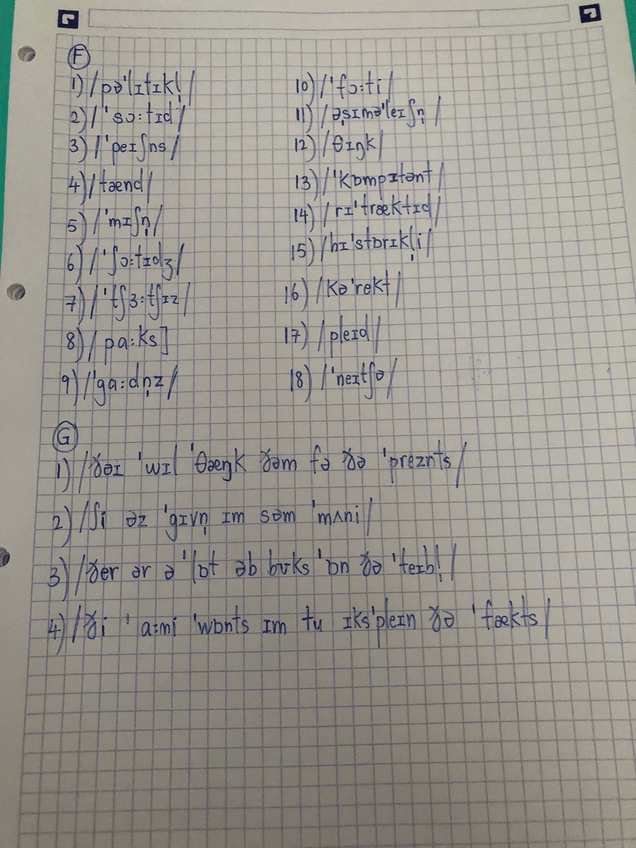 F
1) /pəˈlɪtɪkl̩/
2) /ˈsɔ:tɪd/
3) /ˈpeɪʃns/
4) /tænd/
5) /ˈmɪʃn̩/
6) /ˈʃɔ:tɪdʒ/
7) /ˈtʃɜ:tʃɪz/
8) /pa:ks]
9) /ˈga:dn̩z/
10) /ˈfɔ:ti/
11) /əˌsɪməˈleɪʃn̩/
12) /θɪŋk/
13) /ˈkɒmpɪtənt/
14) /rɪˈtræktɪd/
15) /hɪˈstɒrɪkl̩i/
16) /kəˈrekt/
17) /pleɪd/
18) /ˈneɪtʃə/
G
1) /ðəɪ ˈwɪl ˈθæŋk ðəm fə ðə ˈpreznts/
2) /ʃi əz ˈgɪvn̩ ɪm səm ˈmʌni/
3) /ðer ər ə ˈlɒt əb bʊks ˈɒn ðə ˈteɪbl̩/
4) /ði ˈa:mi ˈwɒnts ɪm tu ɪksˈpleɪn ðə ˈfækts/